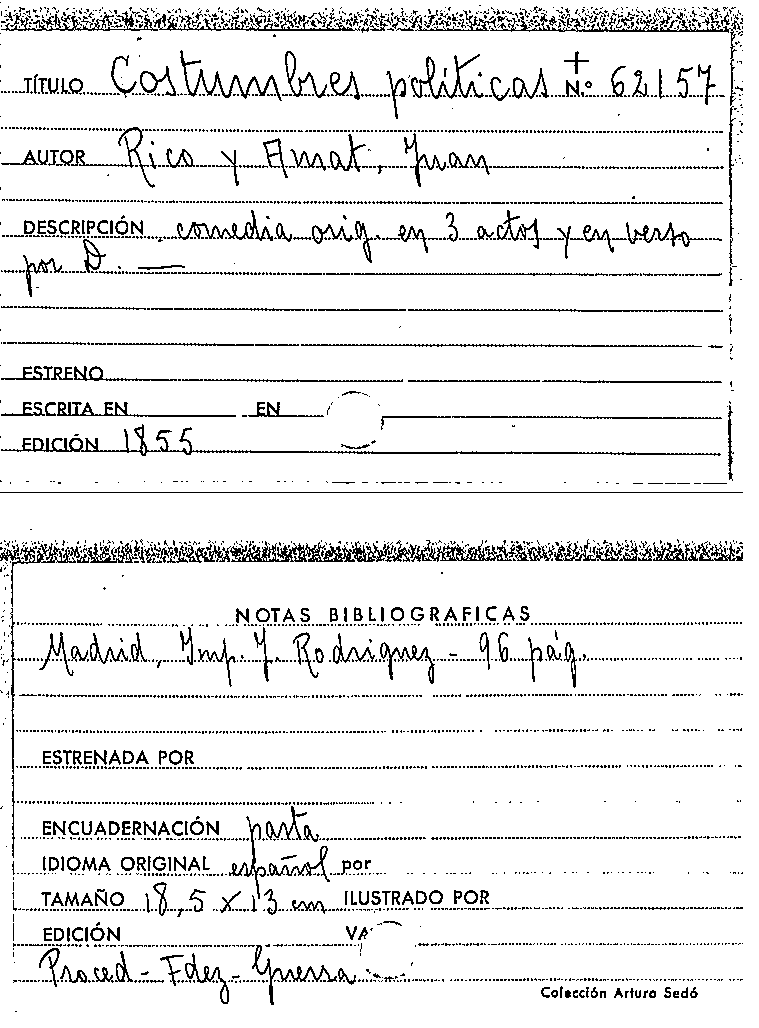 TÍTULO Costumbres políticas + Nº 62157
AUTOR Rico y Amat, Juan
DESCRIPCIÓN comedia orig. en 3 actos y en verso
por D. —
ESTRENO
ESCRITA EN EN
EDICIÓN 1855
NOTAS BIBLIOGRAFICAS
Madrid, Imp. J. Rodriguez - 96 pág.
ESTRENADA POR
ENCUADERNACIÓN pasta
IDIOMA ORIGINAL español por
TAMAÑO 18,5 x 13 cm ILUSTRADO POR
EDICIÓN
Proced - Fdez - Guerra
Colección Arturo Sedó